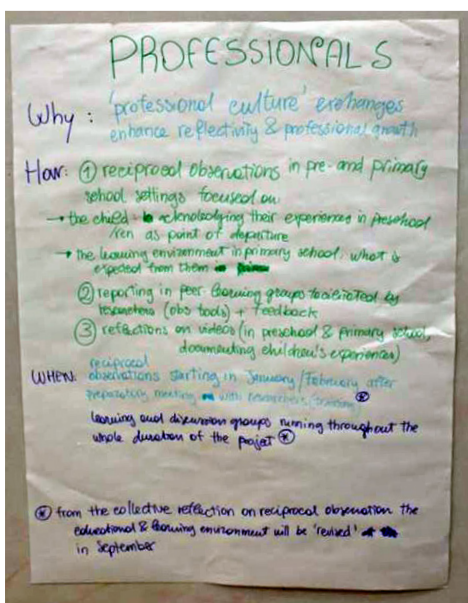 PROFESSIONALS
Why: 'professional culture' exchanges
enhance reflectivity & professional growth
How: ① reciprocal observations in pre- and primary
school settings focused on
→ the child acknowledging their experiences in preschool
/ren as point of departure
→ the learning environment in primary school, what is
expected from them
② reporting in peer-learning groups facilitated by
researchers (obs tools) + feedback
③ reflections on videos (in preschool & primary school,
documenting children's experiences)
WHEN: reciprocal
observations starting in January/February after
preparatory meeting with researchers (training) ⊛
learning and discussion groups running throughout the
whole duration of the project ⊛
⊛ from the collective reflection on reciprocal observation the
educational & learning environment will be 'revised'
in September